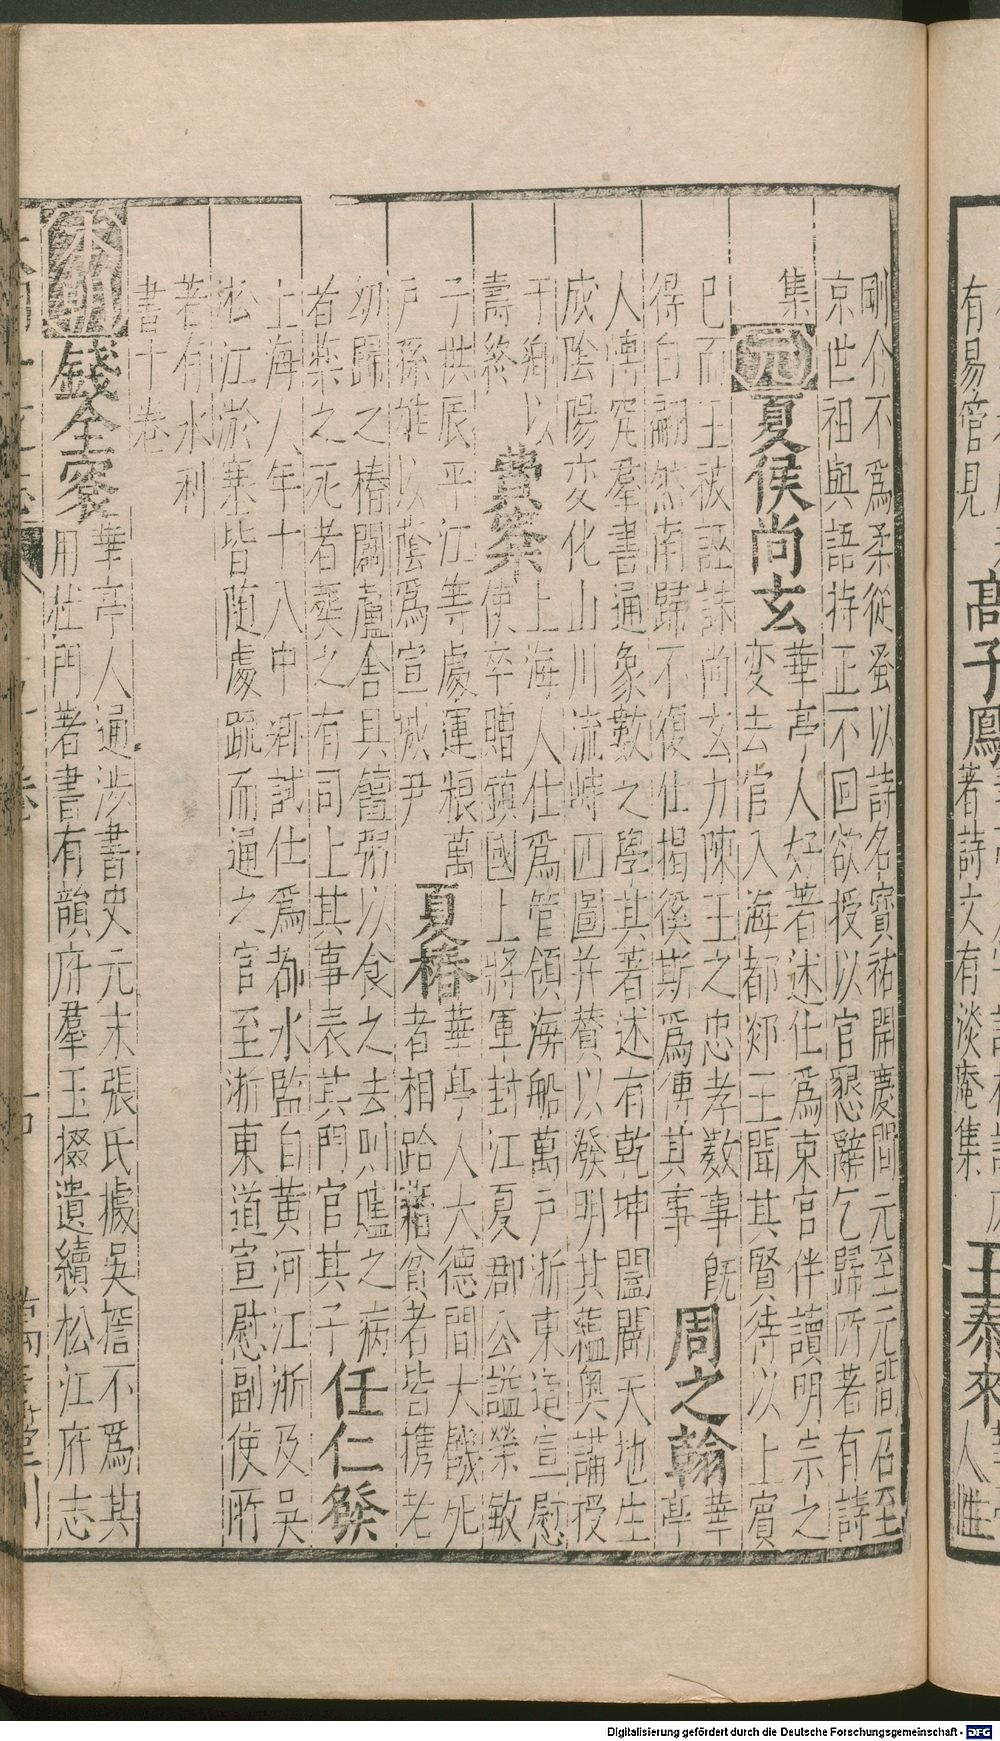 有易管見
高子鳳
著詩文有淡庵集
王泰來
人性
剛介不爲柔從蚤以詩名寳祐開慶間元至元間召至
京世祖與語持正不回欲授以官懇辭乞歸所著有詩
集
元
夏侯尚玄
華亭人好著述仕爲東宫伴讀明宗之
変去官入海都郯王聞其賢待以上賓
已而王被誣誅尚玄力陳王之忠孝数事旣
得白翩然南歸不復仕揭徯斯爲傳其事
周之翰
華
亭
人博究羣書通象數之學其著述有乾坤闔闢天地生
成陰陽変化山川流峙四圖并賛以發明其蘊奥誦授
于鄉以
壽終
費寀
上海人仕爲管領海船萬戸浙東道宣慰
使卒贈鎮國上將軍封江夏郡公謚榮敏
子拱辰平江等處運粮萬
戸孫雄以蔭爲宣城尹
夏椿
華亭人大德間大饑死
者相跲藉貧者皆携老
幼歸之椿闢蘆舍具饘粥以食之去則贐之病
者藥之死者葬之有司上其事表其門官其子
任仁發
上海人年十八中鄉試仕爲都水監自黄河江浙及吳
淞江淤塞皆随處䟽而通之官至浙東道宣慰副使所
著有水利
書十卷
本朝
錢全衮
華亭人通涉書史元末張氏據吳搢不爲其
用杜門著書有韻府羣玉掇遺續松江府志
Digitalisierung gefördert durch die Deutsche Forschungsgemeinschaft - DFG